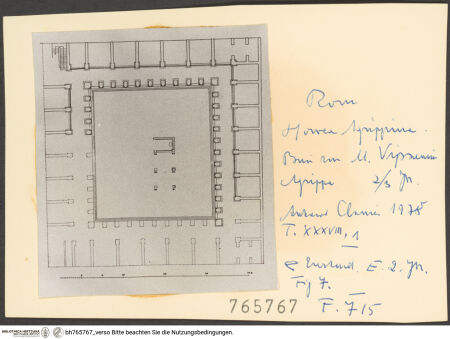 Rom
Horrea Agrippina.
Bau von M. Vipsanius
Agrippa 2/3 Jh.
1975
T. XXXVIII, 1
E. 2. Jh.
Fig 7.
F. 715
765767
BIBLIOTHECA HERTZIANA
bh765767_verso Bitte beachten Sie die Nutzungsbedingungen.